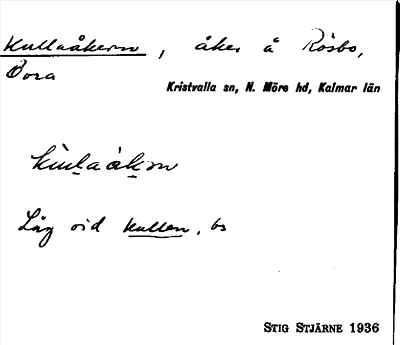 Kullaåkern, åker å Rösbo,
Bora
Kristvalla sn, N. Möre hd, Kalmar län
Låg vid Kullen, bs
STIG STJÄRNE 1936